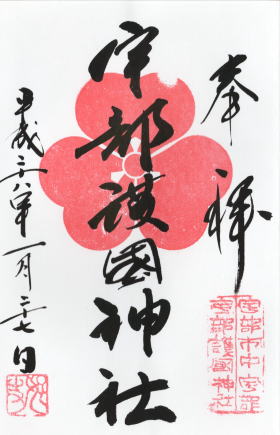 奉拝
宇部護國神社
平成二十八年一月二十七日
宇部市中宇部
宇部護國神社